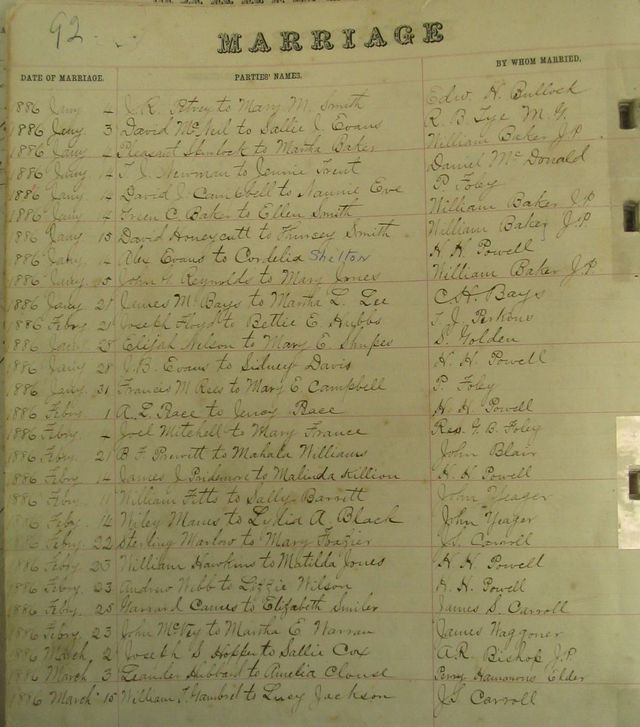 92
MARRIAGE
DATE OF MARRIAGE. PARTIES' NAMES. BY WHOM MARRIED,
1886 Jany 4 J. R. Petrey to Mary M. Smith Edw. H. Bullock
1886 Jany 3 David McNeil to Sallie J. Evans R. B. Tye M. G.
1886 Jany 4 Pleasant to Martha Baker William Baker J.P.
1886 Jany 14 T. J. Newman to Jennie Trent Daniel McDonald
1886 Jany 14 David J. Campbell to Nannie Eve P. Foley
1886 Jany 14 Green C. Baker to Ellen Smith William Baker J.P
886 Jany 15 David Honeycutt to Smith William Baker J.P
886 Jany 14 Alex Evans to Cordelia Shelton H. H. Powell
1886 Jany 15 John G Reynolds to Mary Jones William Baker J.P
1886 Jany 21 James M Bays to Martha L. Lee C. H. Bays
1886 Febry 21 Joseph Floyd to Bettie E. Hubbs T. J. Perkins
886 Jan 28 Elijah Nelson to Mary E. S. Golden
886 Jany 28 J. B. Evans to Sidney Davis H. H. Powell
1886 Jany 31 Francis M Rees to Mary E. Campbell P. Foley
1886 Febry 1 A. L. Race to Jency Race H. H. Powell
1886 Febry 4 Joel Mitchell to Mary France Rev. G. B. Foley
1886 Febry 21 B. F. Prewitt to Mahala Williams John Blair
1886 Febry 14 James J. Pridemore to Malinda Killion H. H. Powell
1886 Febry 11 William Fitts to Sally Barrett John Yeager
1886 Febry 14 Wiley Mames to Lydia A. Black John Yeager
1886 Febry 22 Sterling Warlow to Mary Frazier J. S. Carroll
1886 Febry 23 William Hawkins to Matilda Jones H. H. Powell
1886 Febry 23 Andrew Webb to Lizzie Wilson H. H. Powell
1886 Febry 25 Garrard to Elizabeth Smiler James S. Carroll
1886 Febry 23 John McVey to Martha E. Warran James Waggoner
1886 March 2 Joseph S Hopper to Sallie Cox A. R. Bishop J.P.
1886 March 3 Leander Hubbard to Amelia Clouse Perry Hammons Elder
1886 March 15 William T. Gambrel to Lucy Jackson J. S. Carroll